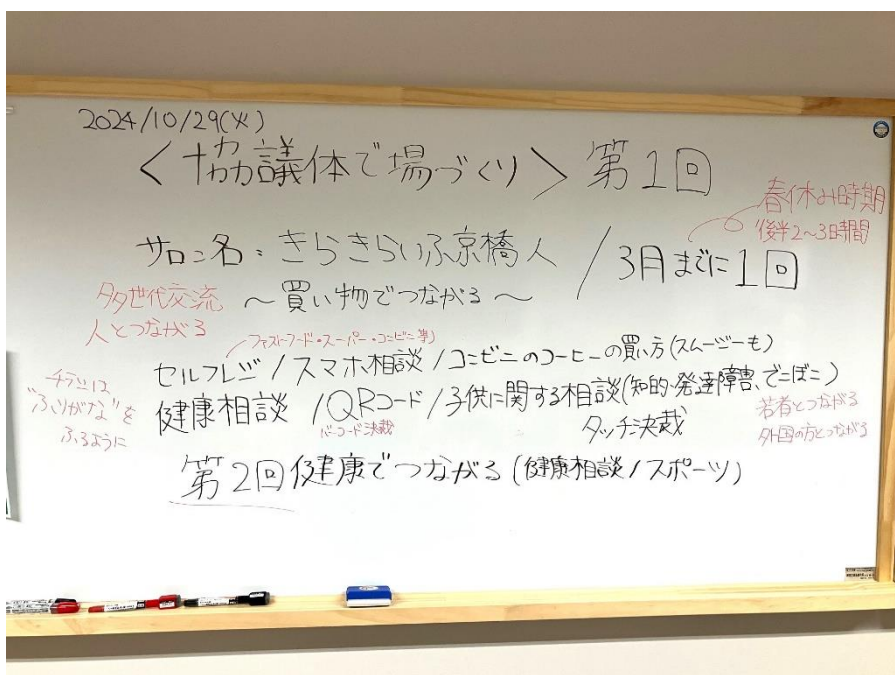 2024/10/29(火)
<協議体で場づくり> 第1回
春休み時期
後半2~3時間
サロン名:きらきらいふ京橋人 / 3月までに1回
多世代交流
人とつながる
~買い物でつながる~
ファストフード・スーパー・コンビニ等)
セルフレジ/スマホ相談/コンビニのコーヒーの買い方(スムージーも)
チラシは
"ふりがな"を
ふるように
健康相談 /QRコード/子供に関する相談(知的・発達障害、でこぼこ)
バーコード決裁
タッチ決裁
若者とつながる
外国の方とつながる
第2回 健康でつながる(健康相談/スポーツ)